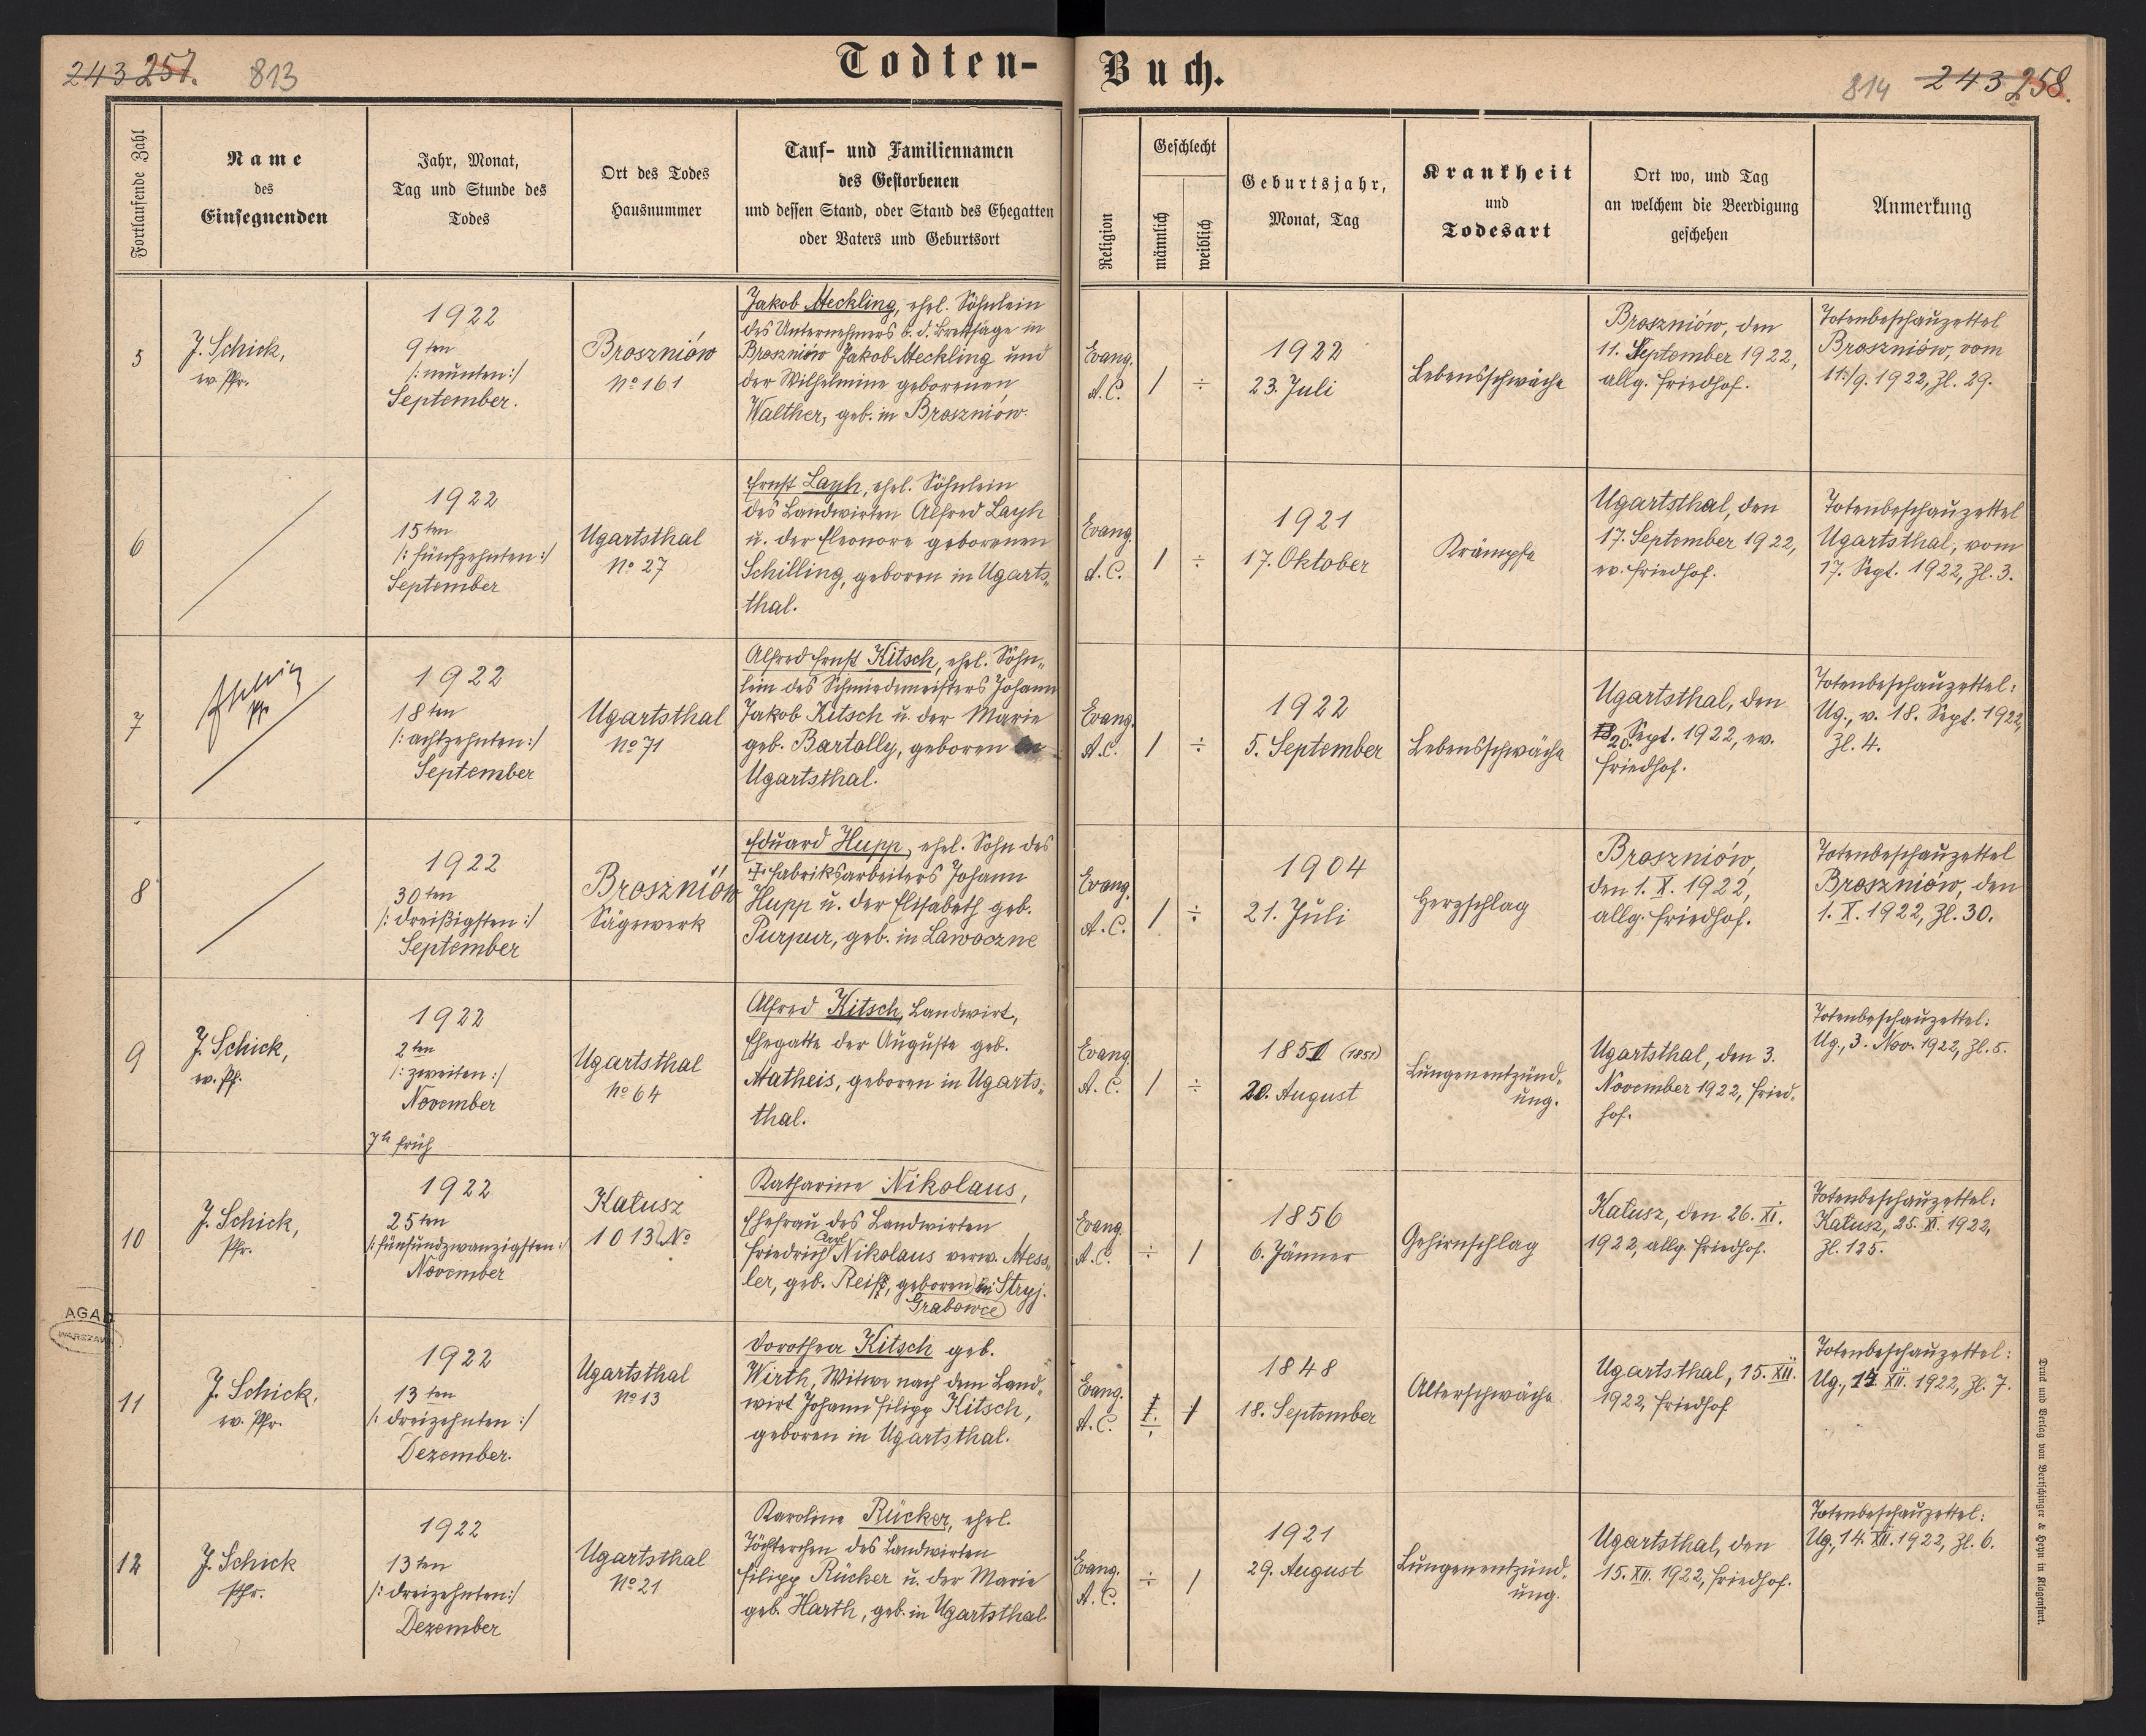 243 257. 813
Todten-
Buch.
814 243 258.
Fortlaufende Zahl
Name
des
Einsegnenden
Jahr, Monat,
Tag und Stunde des
Todes
Ort des Todes
Hausnummer
Tauf- und Familiennamen
des Gestorbenen
und dessen Stand, oder Stand des Ehegatten
oder Vaters und Geburtsort
Religion
Geschlecht
männlich
weiblich
Geburtsjahr,
Monat, Tag
Krankheit
und
Todesart
Ort wo, und Tag
an welchem die Beerdigung
geschehen
Anmerkung
5
J. Schick,
ev. Pfr.
1922
9ten
/: neunten :/
September.
Broszniów
No 161
Jakob Meckling, ehel. Söhnlein
des Unternehmers b. d. Brettsäge in
Broszniów Jakob Meckling und
der Wilhelmine geborenen
Walther, geb. in Broszniów.
Evang.
A.C.
/
÷
1922
23. Juli
Lebensschwäche
Broszniów, den
11. September 1922,
allg. Friedhof.
Totenbeschauzettel
Broszniów, vom
11./9. 1922, Zl. 29.
6
1922
15ten
/: fünfzehnten :/
September
Ugartsthal
No 27
Ernst Layh, ehel. Söhnlein
des Landwirten Alfred Layh
u. der Eleonore geborenen
Schilling, geboren in Ugarts„
thal.
Evang.
A.C.
/
÷
1921
17. Oktober
Krämpfe
Ugartsthal, den
17. September 1922,
ev. Friedhof.
Totenbeschauzettel
Ugartsthal, vom
17. Sept. 1922, Zl. 3.
7
1922
18ten
/: achtzehnten :/
September
Ugartsthal
No 71
Alfred Ernst Kitsch, ehel. Söhn„
lein des Schmiedmeisters Johann
Jakob Kitsch u. der Marie
geb. Bartolly, geboren in
Ugartsthal.
Evang.
A.C.
/
÷
1922
5. September
Lebensschwäche
Ugartsthal, den
20. Sept. 1922, ev.
Friedhof.
Totenbeschauzettel:
Ug., v. 18. Sept. 1922,
Zl. 4.
8
1922
30ten
/: dreißigsten :/
September
Broszniów
Sägewerk
Eduard Hupp, ehel. Sohn des
† Fabriksarbeiters Johann
Hupp u. der Elisabeth geb.
Purpur, geb. in Lawoczne
Evang.
A.C.
/
÷
1904
21. Juli
Herzschlag
Broszniów,
den 1. X. 1922,
allg. Friedhof.
Totenbeschauzettel
Broszniów, den
1. X. 1922, Zl. 30.
9
J. Schick,
ev. Pf.
1922
2ten
/: zweiten :/
November
7h früh
Ugartsthal
No 64
Alfred Kitsch, Landwirt,
Ehegatte der Auguste geb.
Matheis, geboren in Ugarts„
thal.
Evang.
A.C.
/
÷
1851 (1851)
20. August
Lungenentzünd„
ung.
Ugartsthal, den 3.
November 1922, Fried„
hof.
Totenbeschauzettel:
Ug., 3. Nov. 1922, Zl. 5.
10
J. Schick,
Pfr.
1922
25ten
/: fünfundzwanzigsten :/
November
Kałusz
1013 No
Katharine Nikolaus,
Ehefrau des Landwirten
Carl
Friedrich Nikolaus verw. Mess„
ler, geb. Reiß, geboren in Stryj.
Grabowce
Evang.
A.C.
÷
/
1856
6. Jänner
Gehirnschlag
Kałusz, den 26. XI.
1922, allg. Friedhof.
Totenbeschauzettel:
Kałusz, 25. XI. 1922,
Zl. 125.
11
J. Schick,
ev. Pfr.
1922
13ten
/: dreizehnten :/
Dezember.
Ugartsthal
No 13
Dorothea Kitsch geb.
Wirth, Witwe nach dem Land„
wirt Johann Filipp Kitsch,
geboren in Ugartsthal.
Evang.
A.C.
÷
/
1848
18. September
Alterschwäche
Ugartsthal, 15. XII.
1922, Friedhof
Totenbeschauzettel:
Ug., 14. XII. 1922, Zl. 7.
12
J. Schick
Pfr.
1922
13ten
/: dreizehnten :/
Dezember
Ugartsthal
No 21
Karoline Rücker, ehel.
Töchterchen des Landwirten
Filipp Rücker u. der Marie
geb. Harth, geb. in Ugartsthal
Evang.
A.C.
÷
/
1921
29. August
Lungenentzünd„
ung.
Ugartsthal, den
15. XII. 1922, Friedhof.
Totenbeschauzettel:
Ug., 14. XII. 1922, Zl. 6.
AGAD
WARSZAWA
Druck und Verlag von Bertschinger & Heyn in Klagenfurt.